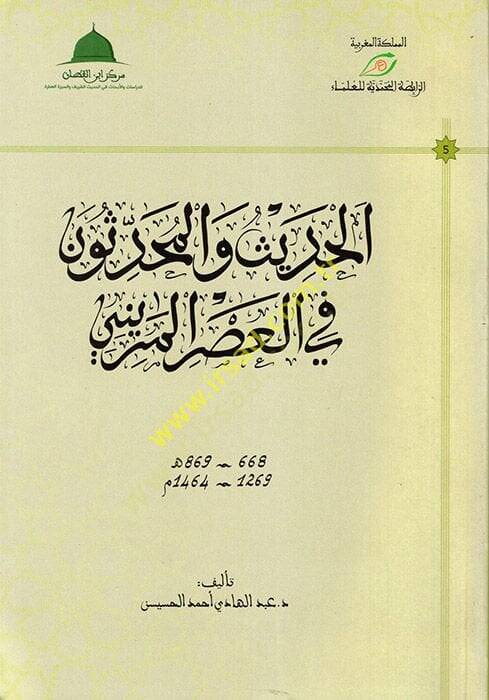 المملكة المغربية
الرابطة المحمدية للعلماء
مركز ابن القطان
للدراسات والأبحاث في الحديث الشريف والسيرة العطرة
5
الْحَدِيثُ وَالْمُحَدِّثُونَ
فِي الْعَصْرِ الْمَرِينِيِّ
668 ~ 869هـ
1269 ~ 1464م
تأليف:
د. عبد الهادي أحمد الحسيسن